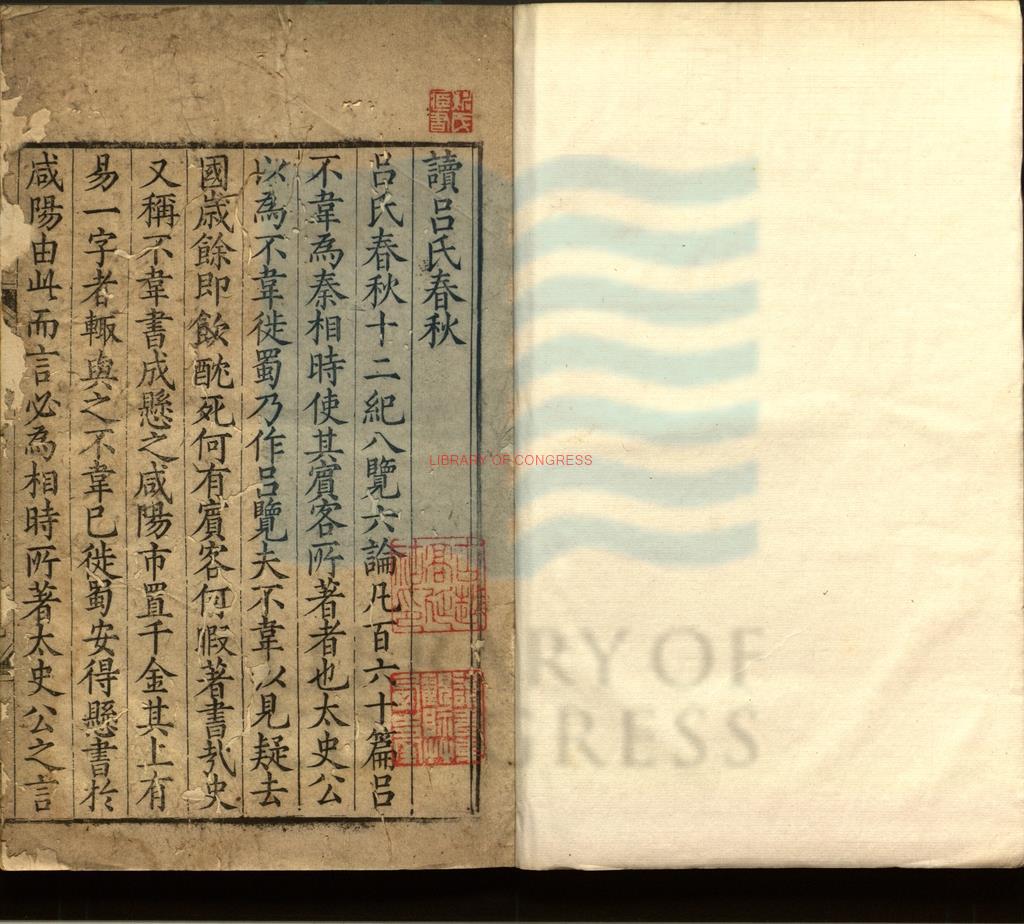 讀呂氏春秋
呂氏春秋十二紀八覽六論凡百六十篇呂
不韋為秦相時使其賓客所著者也太史公
以為不韋徙蜀乃作呂覽夫不韋以見疑去
國歲餘即飲酖死何有賓客何假著書哉史
又稱不韋書成懸之咸陽市置千金其上有
易一字者輙與之不韋已徙蜀安得懸書於
咸陽由此而言必為相時所著太史公之言
LIBRARY OF CONGRESS
RY OF
GRESS